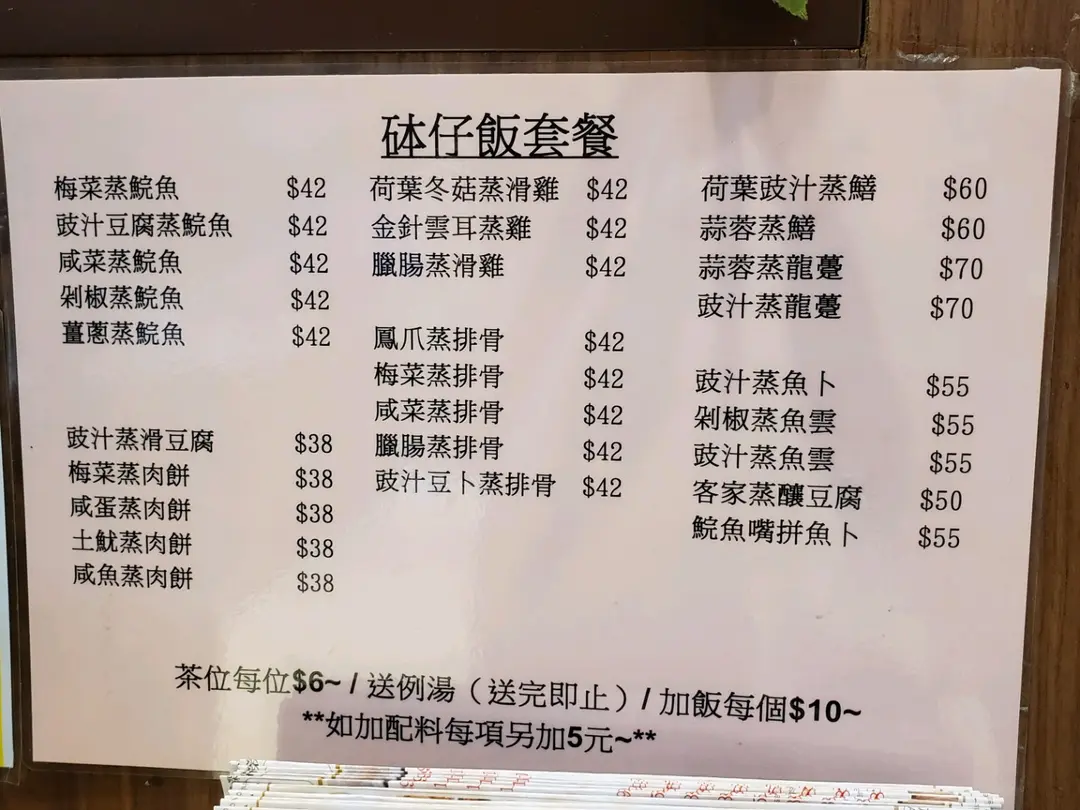 砵仔飯套餐
梅菜蒸鯇魚 $42
豉汁豆腐蒸鯇魚 $42
咸菜蒸鯇魚 $42
剁椒蒸鯇魚 $42
薑蔥蒸鯇魚 $42
豉汁蒸滑豆腐 $38
梅菜蒸肉餅 $38
咸蛋蒸肉餅 $38
土魷蒸肉餅 $38
咸魚蒸肉餅 $38
荷葉冬菇蒸滑雞 $42
金針雲耳蒸雞 $42
臘腸蒸滑雞 $42
鳳爪蒸排骨 $42
梅菜蒸排骨 $42
咸菜蒸排骨 $42
臘腸蒸排骨 $42
豉汁豆卜蒸排骨 $42
荷葉豉汁蒸鱔 $60
蒜蓉蒸鱔 $60
蒜蓉蒸龍躉 $70
豉汁蒸龍躉 $70
豉汁蒸魚卜 $55
剁椒蒸魚雲 $55
豉汁蒸魚雲 $55
客家蒸釀豆腐 $50
鯇魚嘴拼魚卜 $55
茶位每位$6~ / 送例湯（送完即止）/ 加飯每個$10~
**如加配料每項另加5元~**